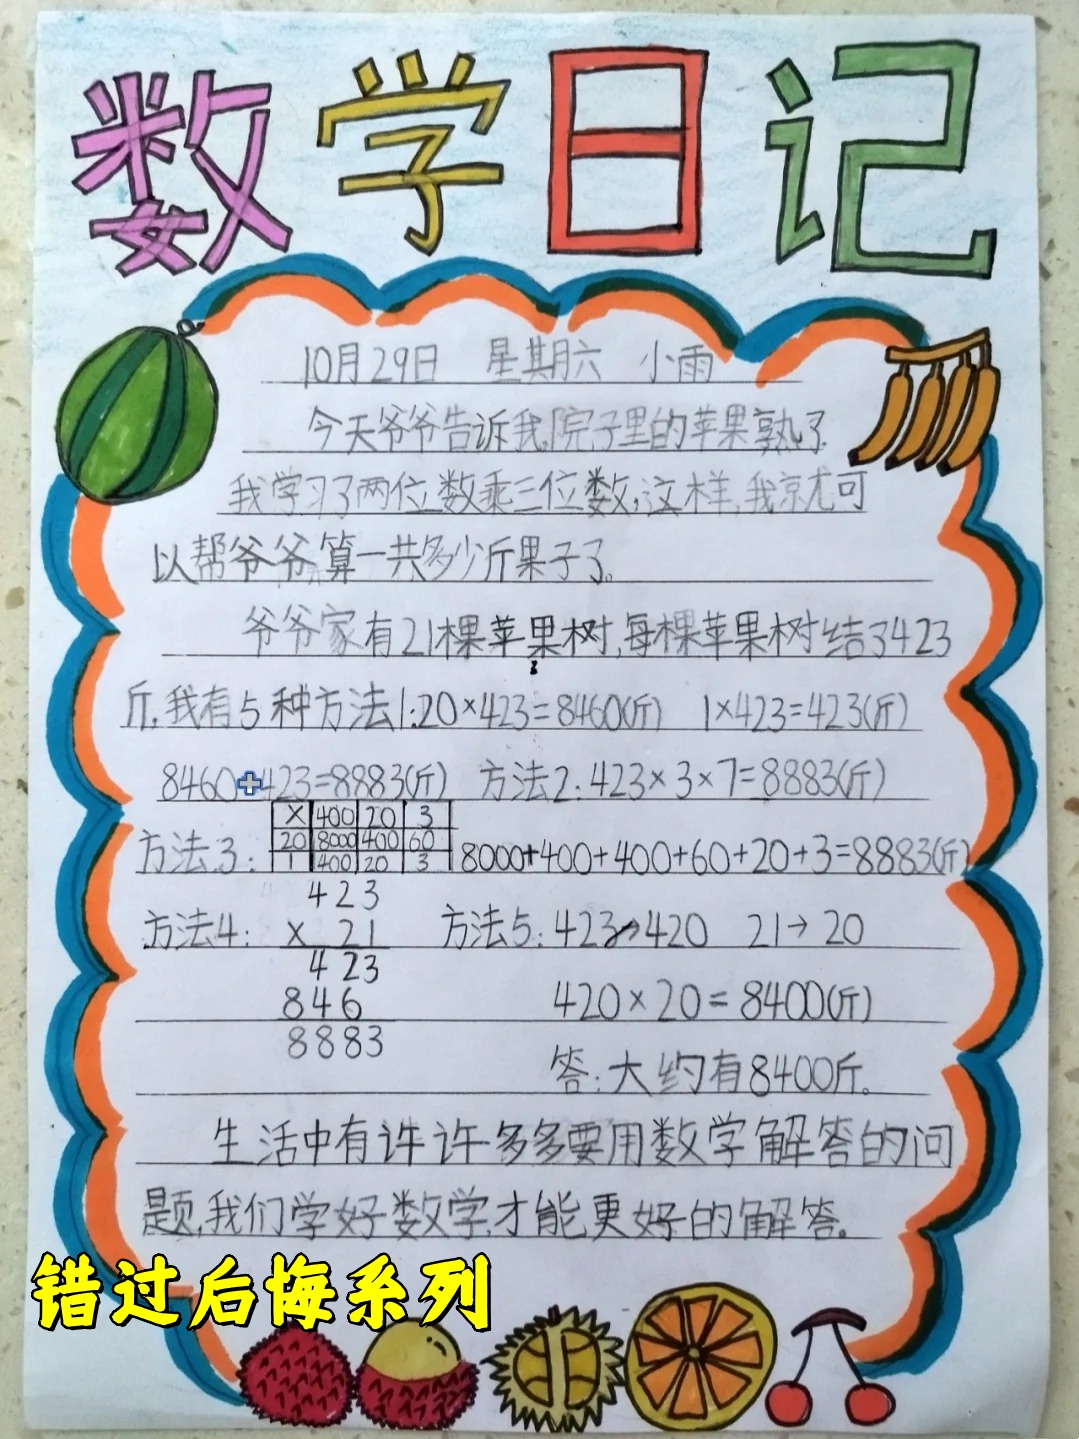 数学日记
10月29日 星期六 小雨
今天爷爷告诉我,院子里的苹果熟了.
我学习了两位数乘三位数,这样,我就可
以帮爷爷算一共多少斤果子了。
爷爷家有21棵苹果树,每棵苹果树结了423
斤.我有5种方法1:20×423=8460(斤) 1×423=423(斤)
8460+423=8883(斤) 方法2:423×3×7=8883(斤)
方法3:
× 400 20 3
20 8000 400 60
1 400 20 3
8000+400+400+60+20+3=8883(斤)
方法4:
423
× 21
423
846
8883
方法5:423→420 21→20
420×20=8400(斤)
答:大约有8400斤。
生活中有许许多多要用数学解答的问
题,我们学好数学,才能更好的解答。
错过后悔系列